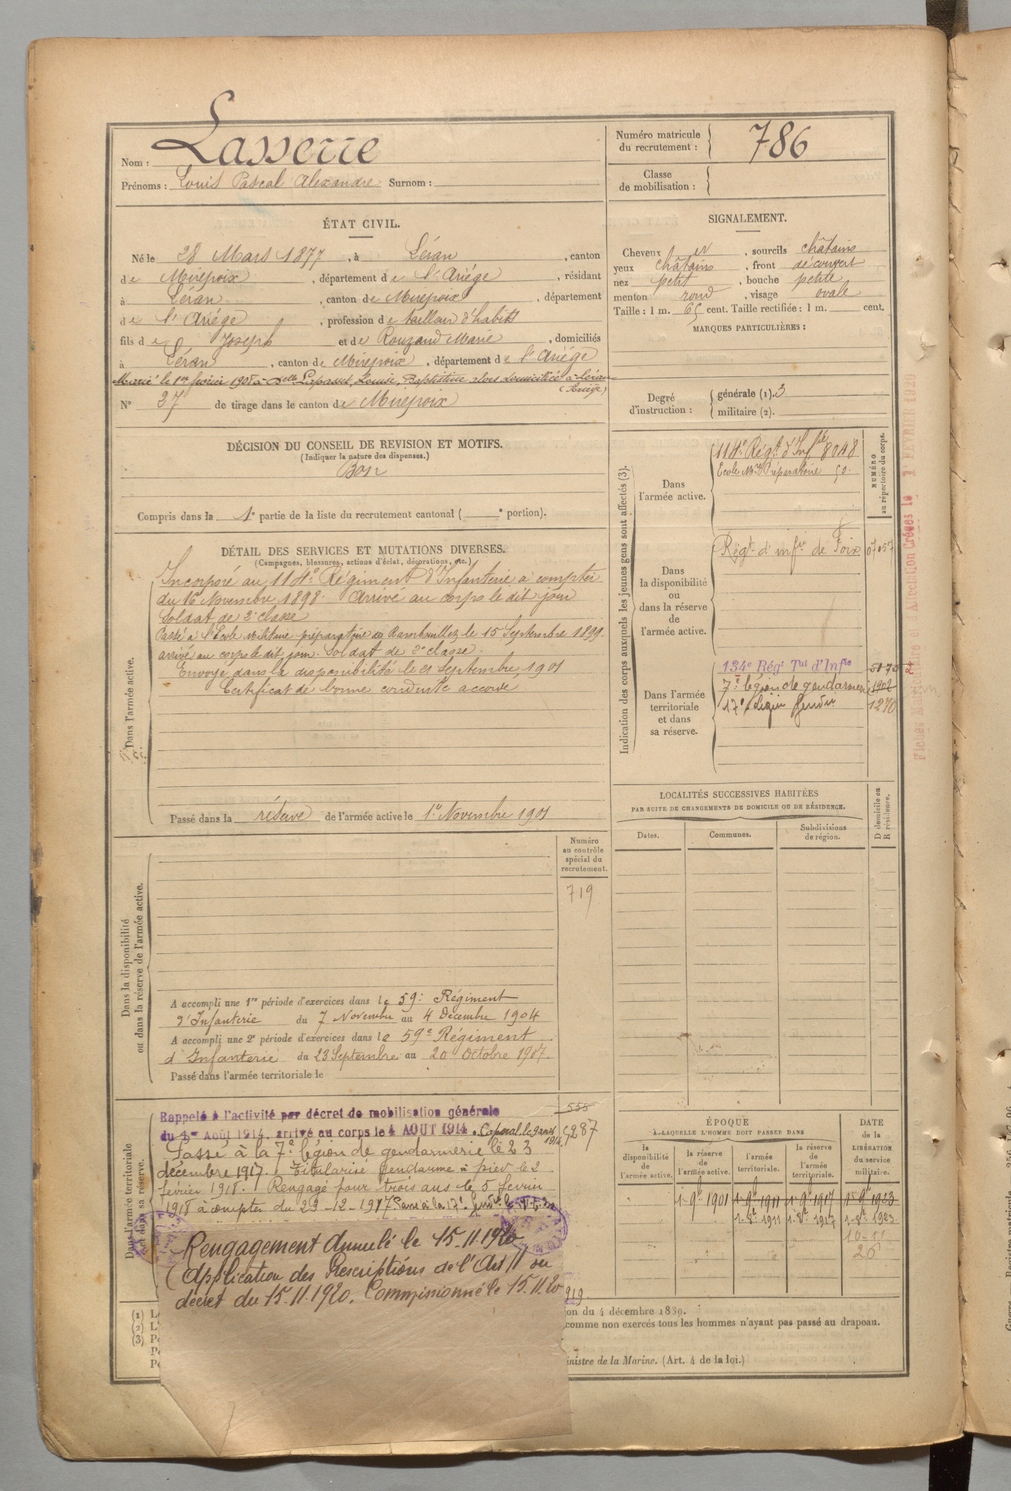 Nom : Lasserre
Prénoms : Louis Pascal Alexandre Surnom :
Numéro matricule du recrutement : 786
Classe de mobilisation :
ÉTAT CIVIL.
Né le 28 Mars 1877, à Léran, canton
de Mirepoix, département de l'Ariége, résidant
à Léran, canton de Mirepoix, département
de l'Ariége, profession de tailleur d'habits
fils de Joseph et de Rouzaud Marie, domiciliés
à Léran, canton de Mirepoix, département de l'Ariége
Marié le 1er février 1905 à Delle Lapasset, Louise, Baptistine alors domiciliée à Léran
(Ariège)
N° 27 de tirage dans le canton de Mirepoix
SIGNALEMENT.
Cheveux et, sourcils châtains
yeux châtains, front découvert
nez petit, bouche petite
menton rond, visage ovale
Taille : 1 m. 65 cent. Taille rectifiée : 1 m. cent.
MARQUES PARTICULIÈRES :
Degré d'instruction : générale (1). 3
militaire (2).
DÉCISION DU CONSEIL DE REVISION ET MOTIFS.
(Indiquer la nature des dispenses.)
Bon
Compris dans la 1e partie de la liste du recrutement cantonal ( e portion).
DÉTAIL DES SERVICES ET MUTATIONS DIVERSES.
(Campagnes, blessures, actions d'éclat, décorations, etc.)
Dans l'armée active.
Incorporé au 114e Régiment d'Infanterie à compter
du 16 Novembre 1898. Arrivé au corps le dit jour
Soldat de 2e classe
Passé à l'Ecole militaire préparatoire de Rambouillet le 15 Septembre 1899.
arrivé au corps le dit jour. Soldat de 2e classe.
Envoyé dans la disponibilité le 21 Septembre 1901
Certificat de bonne conduite accordé
Passé dans la réserve de l'armée active le 1er Novembre 1901
Indication des corps auxquels les jeunes gens sont affectés (3).
NUMÉRO au répertoire du corps.
Dans l'armée active.
114e Régt d'Infrie 8048
Ecole Mre Préparatoire 50.
Dans la disponibilité ou dans la réserve de l'armée active.
Régt d'infie de Foix
Dans l'armée territoriale et dans sa réserve.
134e Régt Tal d'Infie
7e légion de gendarmerie 1902
17e Légion Gendar 1270
LOCALITÉS SUCCESSIVES HABITÉES
PAR SUITE DE CHANGEMENTS DE DOMICILE OU DE RÉSIDENCE.
Dates. Communes. Subdivisions de région. D domicile ou R résidence.
Numéro au contrôle spécial du recrutement.
719
Dans la disponibilité ou dans la réserve de l'armée active.
A accompli une 1re période d'exercices dans le 59e Régiment
d'Infanterie du 7 Novembre au 4 Décembre 1904
A accompli une 2e période d'exercices dans le 59e Régiment
d'Infanterie du 23 Septembre au 20 Octobre 1907.
Passé dans l'armée territoriale le
Dans l'armée territoriale et dans sa réserve.
Rappelé à l'activité par décret de mobilisation générale
du 1er Août 1914, arrivé au corps le 4 AOUT 1914. Caporal le
Passé à la 7e légion de gendarmerie le 23
décembre 1917. Titularisé gendarme à pied le 2
février 1918. Rengagé pour trois ans le 5 février
1918 à compter du 23-12-1917
Rengagement Annulé le 15-11-1920
(Application des Prescriptions de l'Art 11 du
décret du 15.11.1920. Commissionné le 15.11.20
ÉPOQUE
À LAQUELLE L'HOMME DOIT PASSER DANS
la disponibilité de l'armée active. la réserve de l'armée active. l'armée territoriale. la réserve de l'armée territoriale.
DATE de la LIBÉRATION du service militaire.
1-9bre 1901 1-9bre 1911 1-9bre 1917 1-9bre 1923
1-8bre 1911 1-8bre 1917 1-8bre 1923
on du 4 décembre 1889.
comme non exercés tous les hommes n'ayant pas passé au drapeau.
inistre de la Marine. (Art. 4 de la loi.)
(1)
(2)
(3)